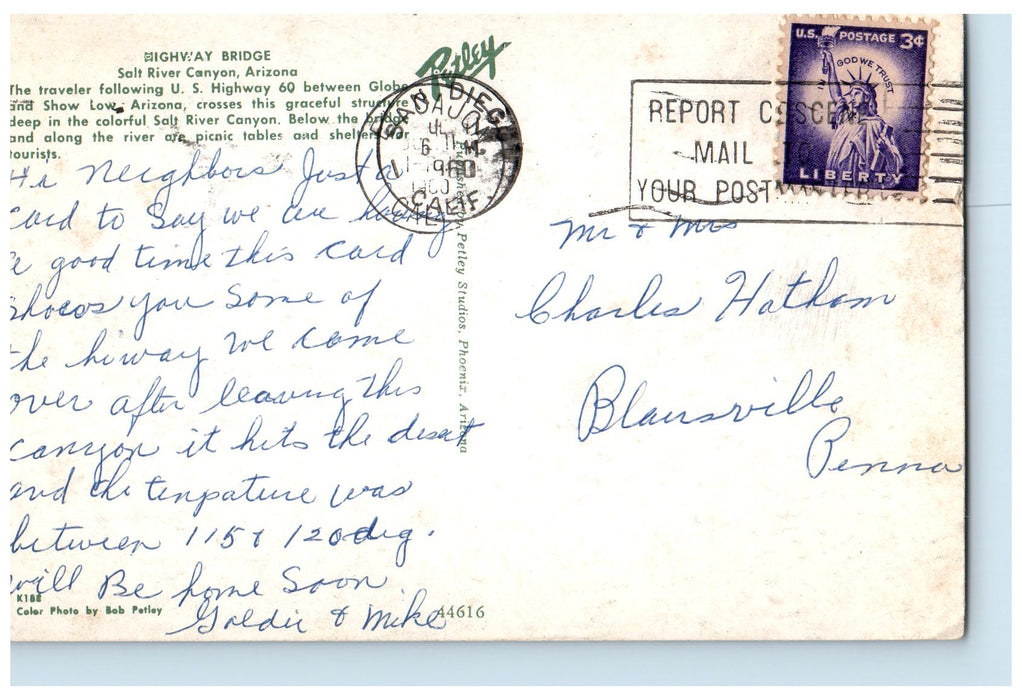 HIGHWAY BRIDGE
Salt River Canyon, Arizona
The traveler following U. S. Highway 60 between Globe
and Show Low, Arizona, crosses this graceful structure
deep in the colorful Salt River Canyon. Below the bridge
and along the river are picnic tables and shelters for
tourists.
Petley
Hi Neighbors Just a
card to say we are having
a good time this card
shows you some of
the hiway we come
over after leaving this
canyon it hits the desert
and the tenpature was
between 115 & 120 deg.
will Be home Soon
Goldie & Mike
K188
Color Photo by Bob Petley
44616
Petley Studios, Phoenix, Arizona
SAN DIEGO
1960
CALIF
REPORT OBSCENE
MAIL TO
YOUR POSTMASTER
U.S. POSTAGE 3¢
IN GOD WE TRUST
LIBERTY
Mr & Mrs
Charles Hatham
Blairsville
Penna